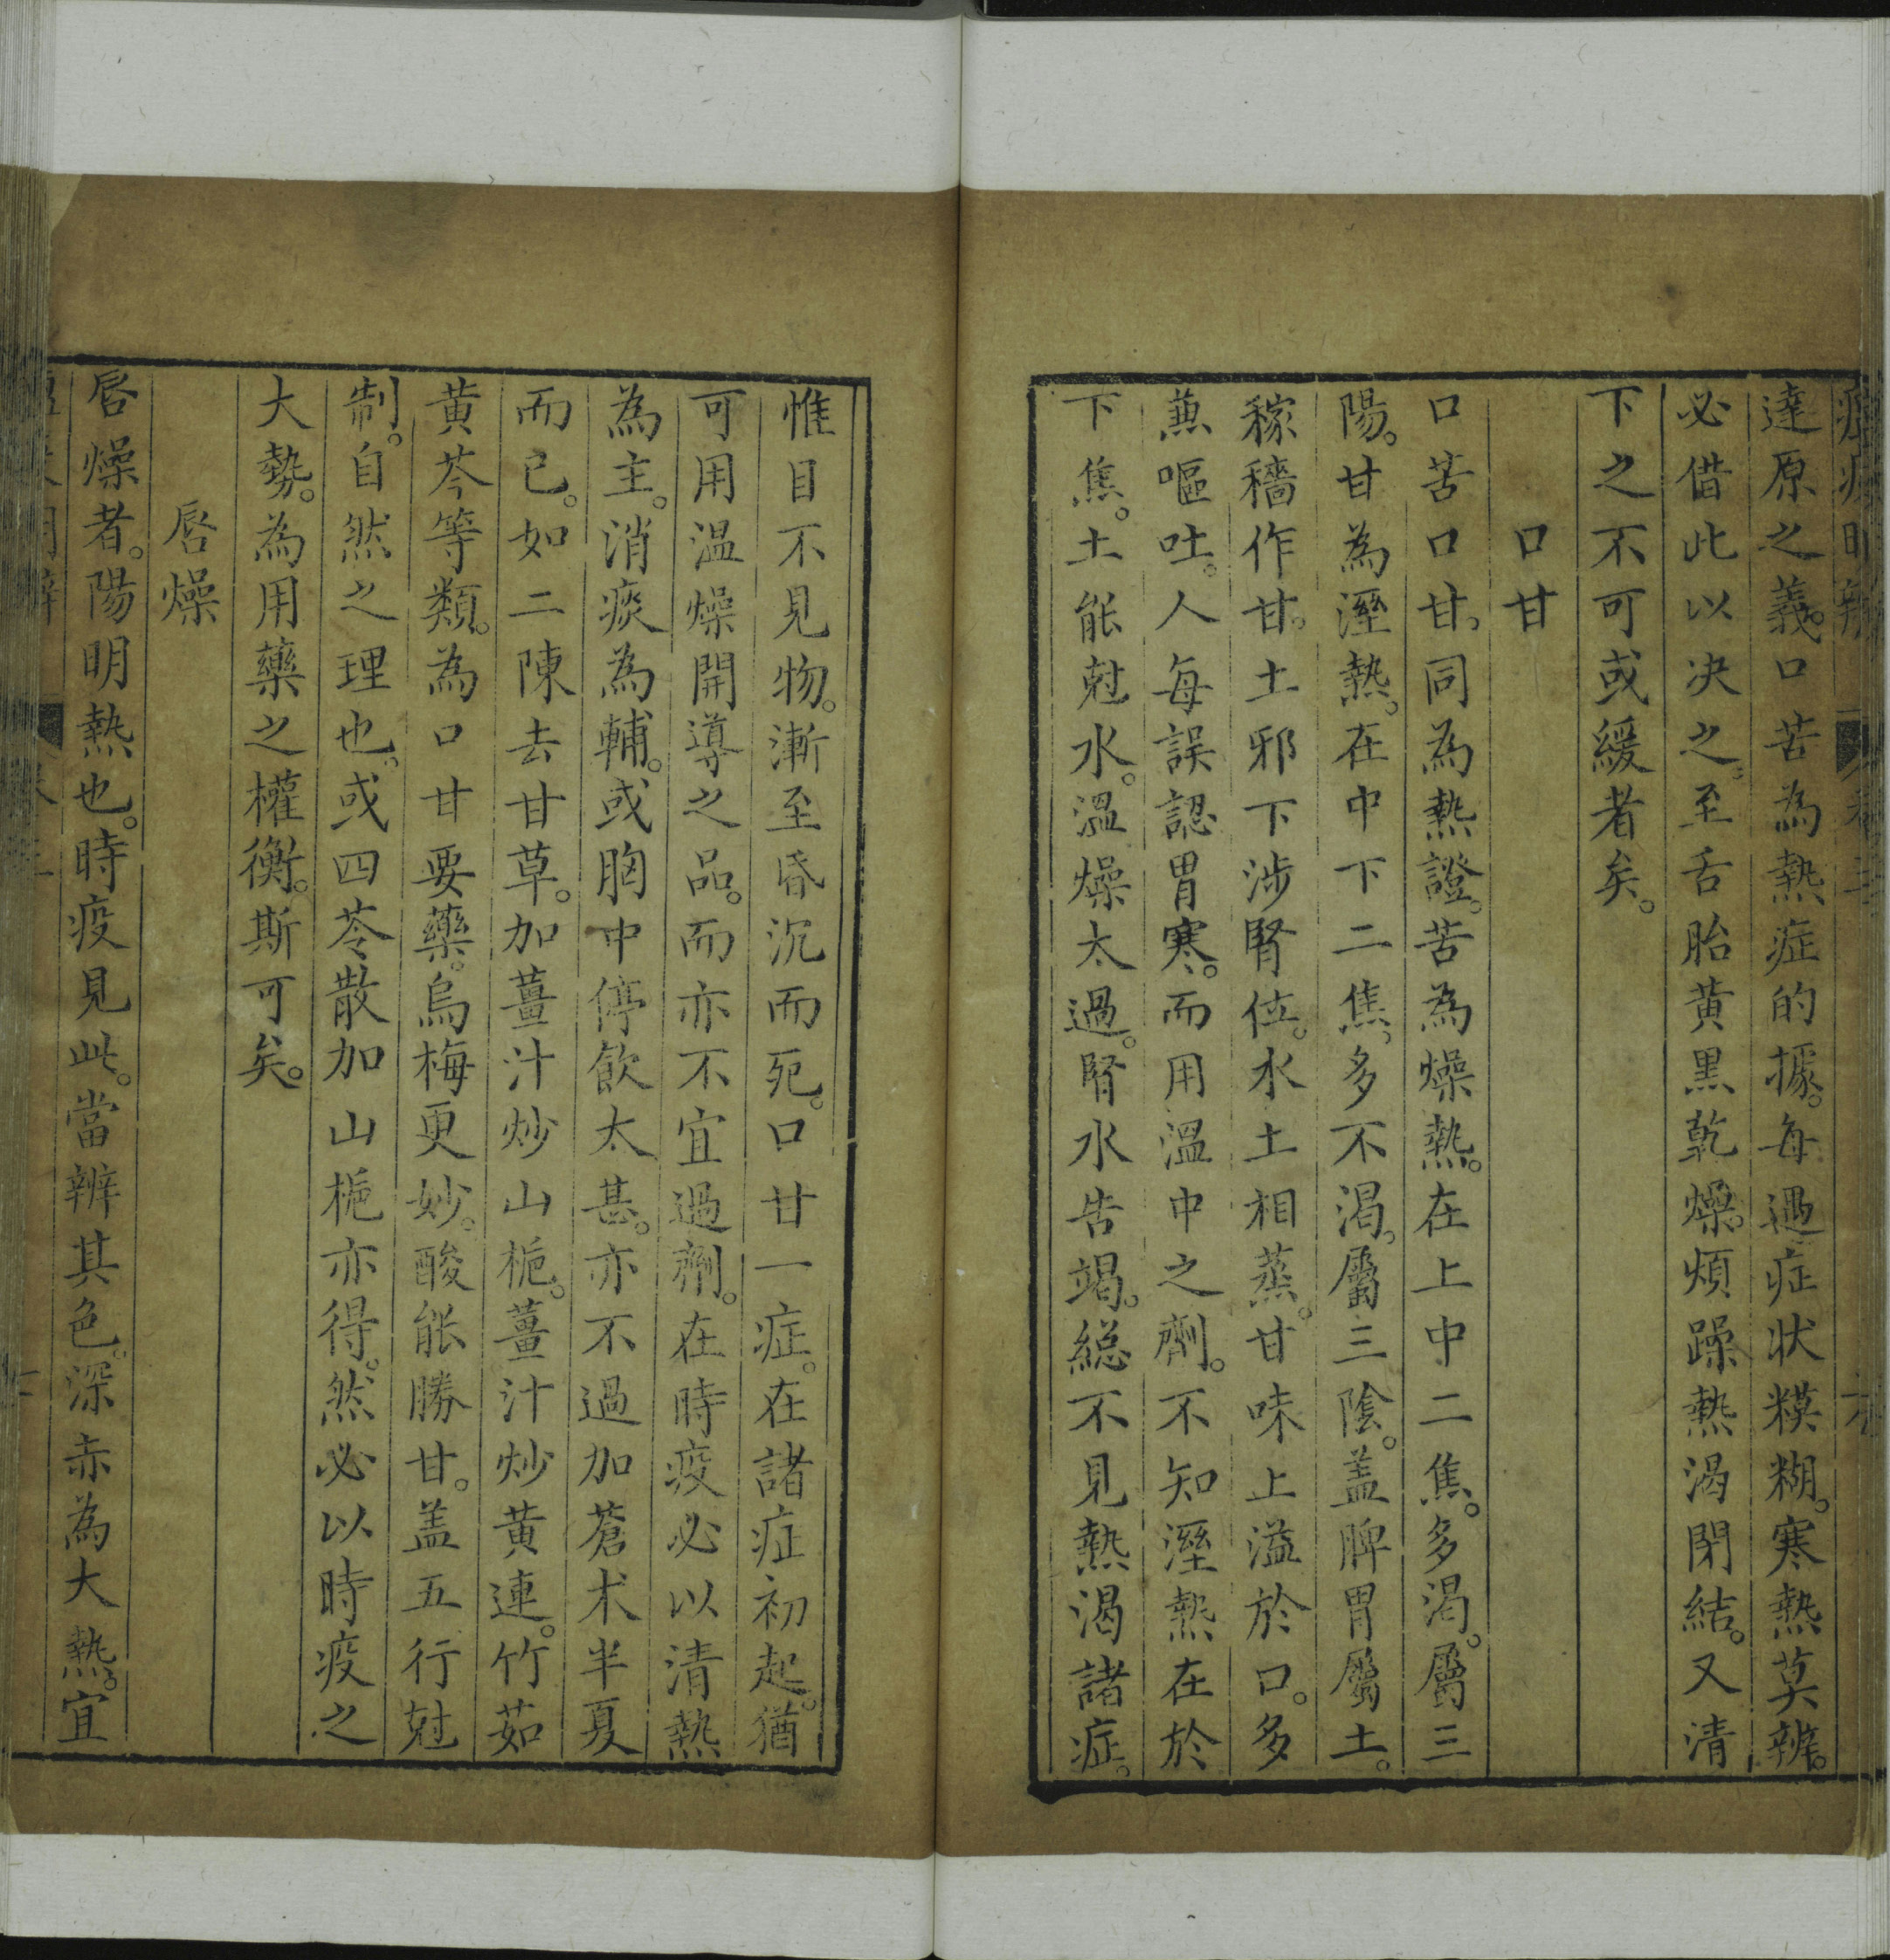 達原之義。口苦為熱症的據。每遇症状糢糊。寒熱莫辨。
必借此以决之。至舌胎黄黒乾燥。煩躁熱渴閉結。又清
下之不可或緩者矣。
口甘
口苦口甘。同為熱證。苦為燥熱。在上中二焦。多渴。屬三
陽。甘為溼熱。在中下二焦。多不渴。屬三陰。盖脾胃屬土。
稼穡作甘。土邪下涉腎位。水土相蒸。甘味上溢於口。多
蕪嘔吐。人每誤認胃寒。而用溫中之劑。不知溼熱在於
下焦。土能尅水。溫燥太過。腎水告竭。総不見熱渴諸症。
惟目不見物。漸至昏沉而死。口甘一症。在諸症初起。猶
可用温燥開導之品。而亦不宜過劑。在時疫必以清熱
為主。消痰為輔。或胸中停飲太甚。亦不過加蒼朮半夏
而已。如二陳去甘草。加薑汁炒山梔。薑汁炒黄連。竹茹
黄芩等類。為口甘要藥。烏梅更妙。酸能勝甘。盖五行尅
制。自然之理也。或四苓散加山梔亦得。然必以時疫之
大勢。為用藥之權衡。斯可矣。
唇燥
唇燥者。陽明熱也。時疫見此。當辨其色。深赤為大熱。宜